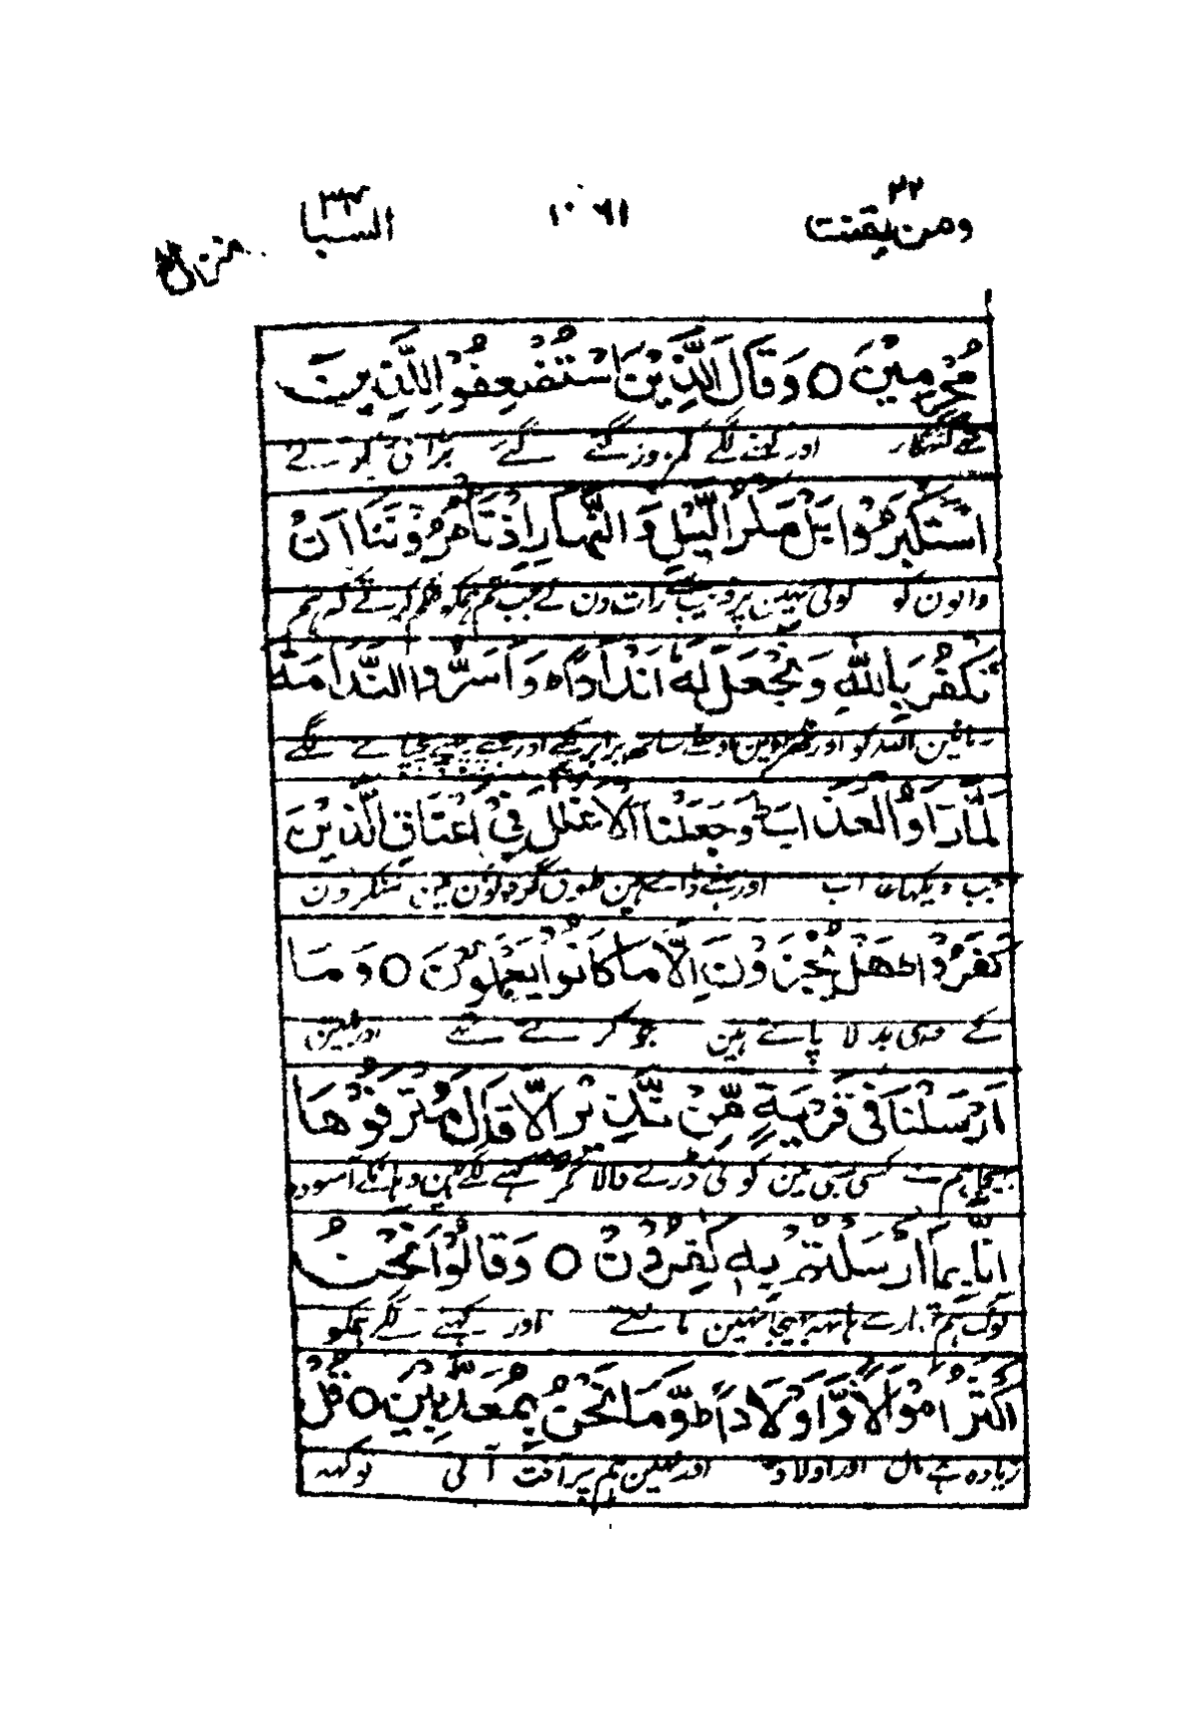 ومن یقنت ٢٢
١٠٦١
السبا ٣٤
منزل
مُّجْرِمِیْنَ ○ وَقَالَ الَّذِیْنَ اسْتُضْعِفُوْا لِلَّذِیْنَ
تھے گنہگار اور کہنے لگے کمزور گنے گئے بڑائی کرنے
اسْتَكْبَرُوْا بَلْ مَكْرُ الَّیْلِ وَ النَّهَارِ اِذْ تَاْمُرُوْنَنَا اَنْ
والون کو کوئی نہین پر فریب سے رات دن کے جب تم ہمکو حکم کرتے کہ ہم
نَّكْفُرَ بِاللّٰهِ وَ نَجْعَلَ لَهٗ اَنْدَادًا ط وَ اَسَرُّوا النَّدَامَةَ
نہ مانین اللہ کو اور ٹھہراوین اوسکے ساتھ برابر کے اور چھپے چھپے پچتانے لگے
لَمَّا رَاَوُا الْعَذَابَ ط وَجَعَلْنَا الْاَغْلٰلَ فِیْۤ اَعْنَاقِ الَّذِیْنَ
جب دیکھا عذاب اور ہمنے ڈالے ہین طوق گردنون مین منکرون
كَفَرُوْا ط هَلْ یُجْزَوْنَ اِلَّا مَا كَانُوْا یَعْمَلُوْنَ ○ وَ مَاۤ
کے وہی بدلا پاتے ہین جو کرتے تھے اور نہین
اَرْسَلْنَا فِیْ قَرْیَةٍ مِّنْ نَّذِیْرٍ اِلَّا قَالَ مُتْرَفُوْهَاۤ
بھیجا ہم نے کسی بستی مین کوئی ڈرانے والا مگر کہنے لگے ہین وہانکے آسودہ
اِنَّا بِمَاۤ اُرْسِلْتُمْ بِهٖ كٰفِرُوْنَ ○ وَقَالُوْا نَحْنُ
لوگ ہم تمہارے ہاتھ بھیجا نہین مانتے اور کہنے لگے ہمکو
اَكْثَرُ اَمْوَالًا وَّ اَوْلَادًا ط وَّ مَا نَحْنُ بِمُعَذَّبِیْنَ ○ قُلْ
زیادہ ہے مال اور اولاد اور نہین ہم پر آفت آنی تو کہہ